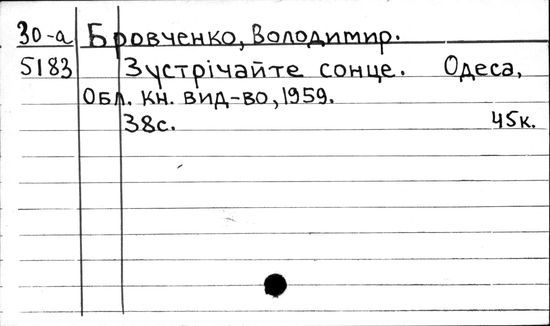 30-а Бровченко, Володимир.
5183 Зустрічайте сонце. Одеса,
Обл. кн. вид-во, 1959.
38с. 45к.